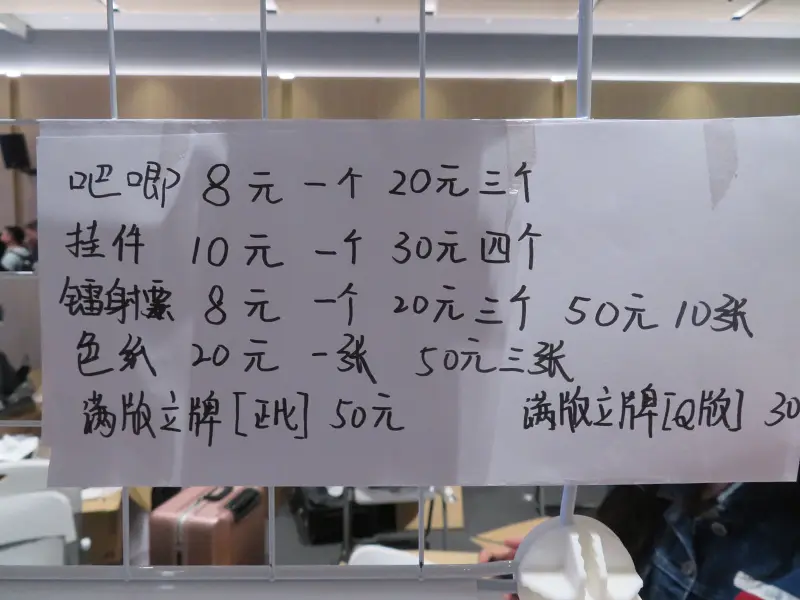 吧唧 8元 一个 20元三个
挂件 10元 一个 30元四个
镭射票 8元 一个 20元三个 50元 10张
色纸 20元 一张 50元三张
满版立牌[正比] 50元 满版立牌[Q版] 30